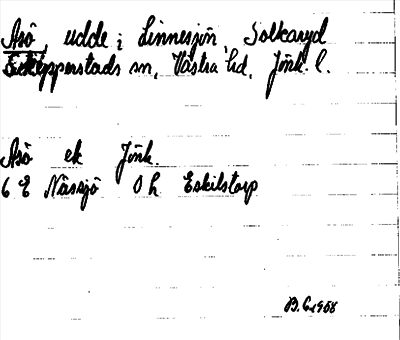 Asö, udde i Linnesjön, Solkaryd
Skepperstads sn, Västra hd, Jönk. l.
Asö ek Jönk.
6 E Nässjö 0 h Eskilstorp